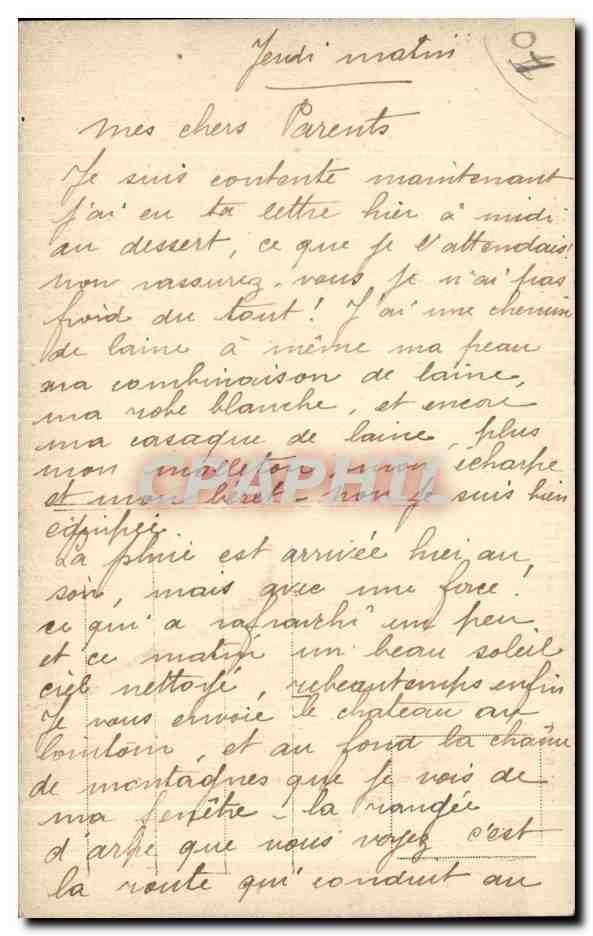 Jeudi matin
Mes chers Parents
Je suis contente maintenant
j'ai eu ta lettre hier à midi
au dessert, ce que je l'attendais!
non rassurez-vous je n'ai pas
froid du tout! J'ai une chemise
de laine à même ma peau
ma combinaison de laine,
ma robe blanche, et encore
ma casaque de laine, plus
mon molleton, mon écharpe
et mon béret - non je suis bien
équipée.
La pluie est arrivée hier au
soir, mais avec une force!
ce qui a rafraichi un peu
et ce matin un beau soleil
ciel nettoyé, rebeautemps enfin
Je vous envoie le chateau au
lointain, et au fond la chaîne
de montagnes que je vois de
ma fenêtre - la rangée
d'arbre que vous voyez c'est
la route qui conduit au
CPAPHIL